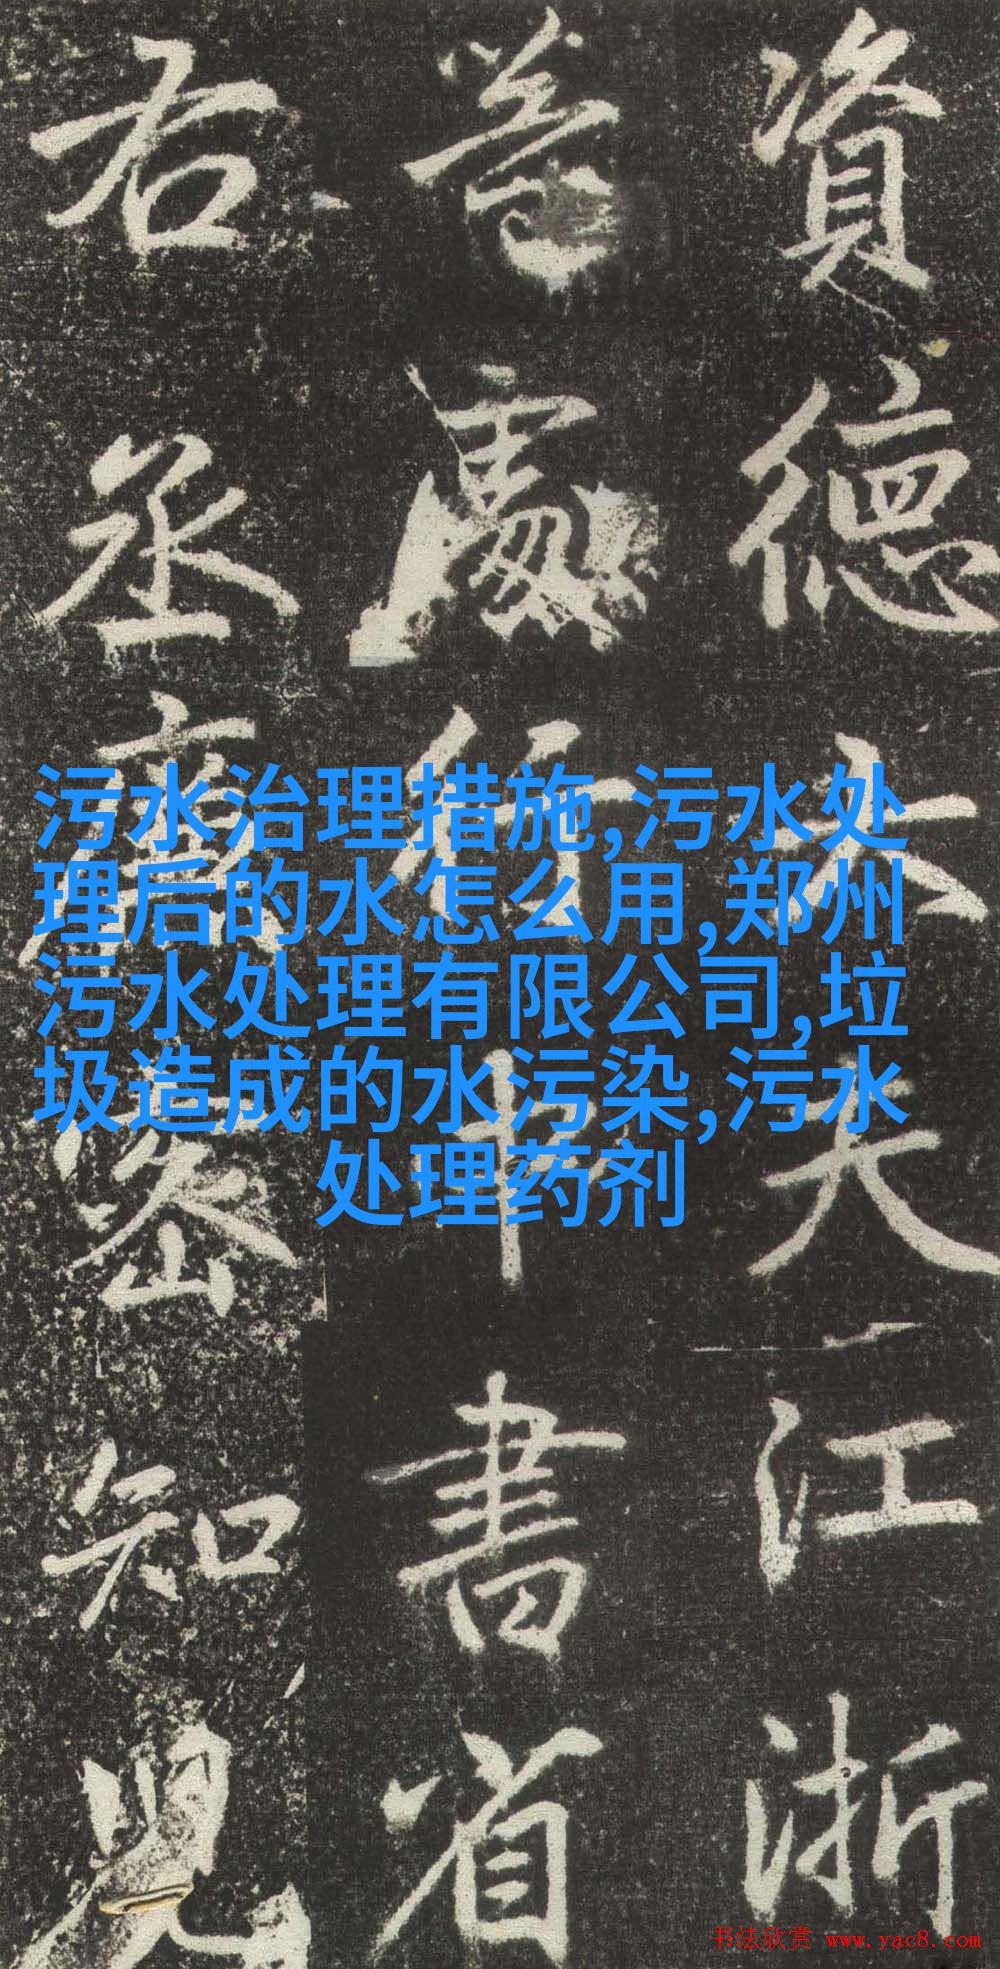 資德大夫江浙
等處行中書省
右丞廉密知兒
污水治理措施,污水处
理后的水怎么用,郑州
污水处理有限公司,垃
圾造成的水污染,污水
处理药剂
书法欣赏 www.yac8.com